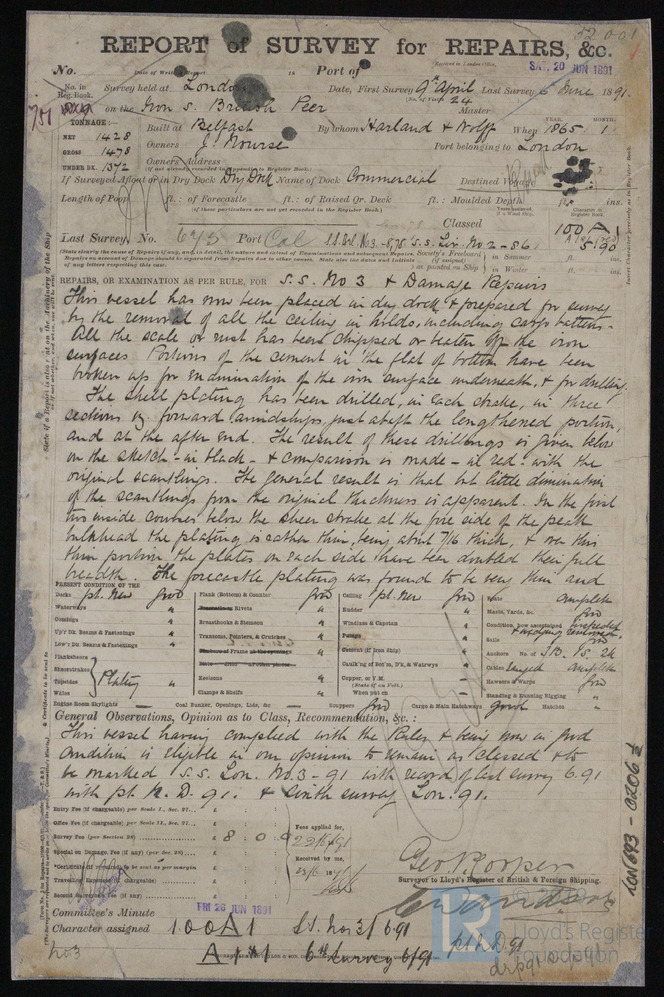 52001
REPORT of SURVEY for REPAIRS, &c.
Received in London Office,
SAT. 20 JUN 1891
No. Date of Writing Report is Port of
No. in Reg. Book. Survey held at London Date, First Survey 9th April Last Survey 6 June 1891.
(No. of Visits 24
751 on the Iron s. British Peer Master
TONNAGE:— YEAR. MONTH.
NET 1428 Built at Belfast By whom Harland & Wolff When 1865 1
GROSS 1478 Owners J. Nourse Port belonging to London
UNDER DK. 1372 Owners' Address
(if not already recorded in Appendix to Register Book.)
If Surveyed Afloat or in Dry Dock Dry Dock Name of Dock Commercial Destined Voyage
Length of Poop ft.: of Forecastle ft.: of Raised Qr. Deck ft.: Moulded Depth ft. ins.
(if these particulars are not yet recorded in the Register Book.)
Classed 100 A 1
Last Survey, No. 675 Port Cal S.S. Lon. No. 3 - 8,75 S.S. Liv. No 2 - 86
REPAIRS, OR EXAMINATION AS PER RULE, FOR S.S. No 3 & Damage Repairs
This vessel has now been placed in dry dock & prepared for survey
by the removal of all the ceiling in holds, including cargo battens.
All the scale or rust has been chipped or beaten off the iron
surfaces. Portions of the cement in the flat of bottom have been
broken up for examination of the iron surface underneath, & for drilling.
The shell plating has been drilled, in each strake, in three
sections viz forward amidships, just abaft the lengthened portion,
and at the after end. The result of these drillings is given below
on the sketch - in black - & comparison is made - in red - with the
original scantlings. The general result is that but little diminution
of the scantlings from the original thickness is apparent. In the first
two inside courses below the sheer strake at the fore side of the peak
bulkhead the plating is rather thin, being about 7/16 thick, & over this
thin portion the plates on each side have been doubled their full
breadth. The forecastle plating was found to be very thin and
PRESENT CONDITION OF THE
Decks pt. New good Plank (Bottom) & Counter good Ceiling pt. New good Boats complete
Waterways " Rivets " Rudder " Masts, Yards, &c. good
Coamings " Breasthooks & Stemson " Windlass & Capstan " Condition, how ascertained inspected
Up'r Dk. Beams & Fastenings " Transoms, Pointers, & Crutches Pumps " Sails good
Low'r Dk. Beams & Fastenings " Timbers of Frame at the openings Cement (if Iron Ship) " Anchors No. of 3B. 1S. 2K
Planksheers Caulk'ng of Bot'm, D'k, & Waterways " Cables complete
Sheerstrakes Keelsons " Copper, or Y.M. Hawsers & Warps good
Topsides Plating " Clamps & Shelfs " (State if on Felt.) Standing & Running Rigging "
Wales When put on
Engine Room Skylights — Coal Bunker, Openings, Lids, &c. — Scuppers good Cargo & Main Hatchways good Hatches "
General Observations, Opinion as to Class, Recommendation, &c. :
This vessel having complied with the Rules & being now in good
condition is eligible in our opinion to remain as classed & to
be marked S.S. Lon. No. 3 - 91 with record of last survey 6.91
with pt. N. D. 91. & sixth survey Lon. 91.
Entry Fee (if chargeable) per Scale I., Sec. 27... £
Office Fee (if chargeable) per Scale II., Sec. 27... £ Fees applied for,
Survey Fee (per Section 28) £ 8 : 0 : 0 22/6/91
Special or Damage Fee (if any) (per Sec. 28) Received by me,
23/6 1891
Travelling Expenses (if chargeable)
Second Surveyor's Fee (if any)
Geo Rooper
Surveyor to Lloyd's Register of British & Foreign Shipping.
Committee's Minute FRI 26 JUN 1891
Character assigned 100A1 S.S. No 3/6.91 pt n.D 91
A 1 6th survey 6/91
No3
LON 693 - 0206
Lloyd's Register
Foundation